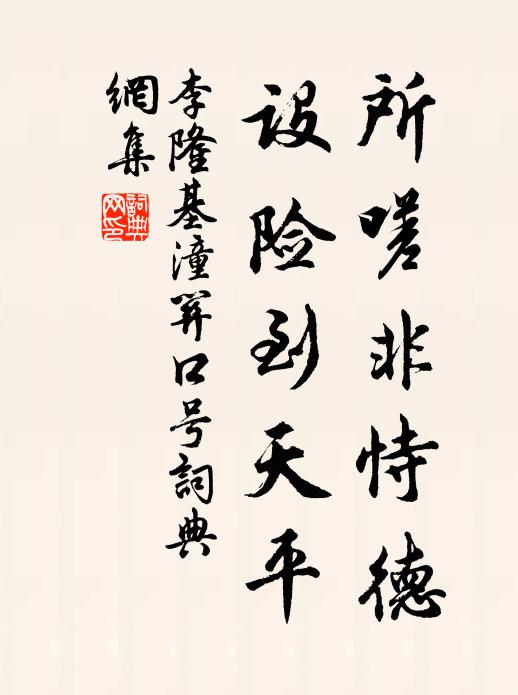 所嗟非恃德
设险到天平
李隆基潼関口号詞典
網集
詞典
网印